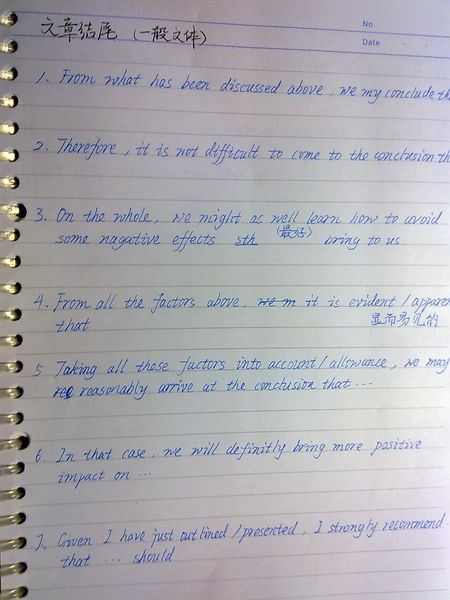 No.
Date
文章结尾 (一般文体)
1. From what has been discussed above, we my conclude th
2. Therefore, it is not difficult to come to the conclusion th
3. On the whole, we might as well learn how to avoid
(最好)
some nagative effects sth bring to us
4. From all the factors above, we m it is evident / apparen
that 显而易见的
5 Taking all these factors into account / allowance, we may
reasonably arrive at the conclusion that ...
6. In that case, we will definitly bring more positive
impact on ...
7. Given I have just outlined / presented, I strongly recommend
that ... should